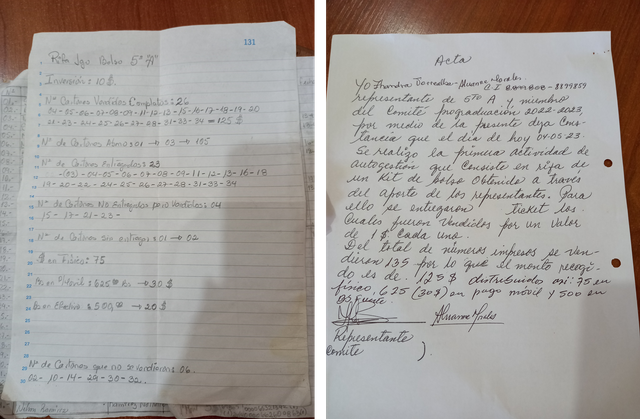 131
Rifa Jgo. Bolso 5º "A"
Inversión: 10 $.
Nº Cartones Vendidos Completos: 26
04-05-06-07-08-09-11-12-13-15-16-17-18-19-20
21-23-24-25-26-27-28-31-33-34 = 125 $
Nº de Cartones
01 → 03 → 105
Nº de Cartones Entregados: 23
(03)-04-05-06-07-08-09-11-12-13-16-18
19-20-22-24-25-26-27-28-31-33-34
Nº de Cartones No Entregados pero Vendidos: 04
15-17-21-23-
Nº de Cartones sin entregar: 01 → 02
$ en Físico: 75
Bs en P/Movil: 625 Bs → 30 $
Bs en Efectivo: 500,00 → 20 $
Nº de Cartones que no se vendieron: 06.
02-10-14-29-30-32.
Acta
Morales
8879859
representante de 5to A y miembro
del Comité prograduación 2022-2023,
por medio de la presente deja Cons-
tancia que el día de hoy 04-05-23.
Se realizo la primera actividad de
autogestión que Consiste en rifa de
un kit de bolso obtenido a través
del aporte de los representantes. Para
ello se entregaron ticket los
Cuales fueron vendidos por un valor
de 1$ Cada uno.
Del total de números impresos se ven-
dieron 135 por lo que el monto recogi-
do es de: 125 $ distribuidos asi: 75 en
físico, 625 (30$) en pago móvil y 500 en
Bs fuerte.
Representante
Comite ).